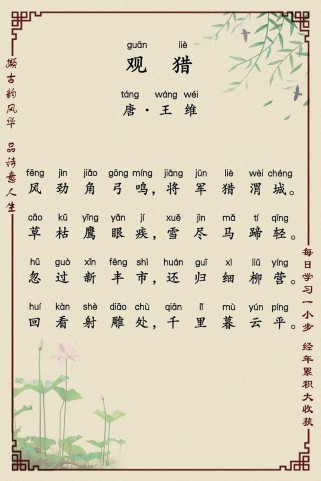 guān liè
观 猎
táng wáng wéi
唐·王 维
fēng jìn jiǎo gōng míng, jiāng jūn liè wèi chéng
风 劲 角 弓 鸣,将 军 猎 渭 城。
cǎo kū yīng yǎn jí xuě jìn mǎ tí qīng
草 枯 鹰 眼 疾,雪 尽 马 蹄 轻。
hū guò xīn fēng shì huán guī xì liǔ yíng
忽 过 新 丰 市,还 归 细 柳 营。
huí kàn shè diāo chù qiān lǐ mù yún píng
回 看 射 雕 处,千 里 暮 云 平。
撷古韵风华 品诗意人生
每日学习一小步 经年累积大收获